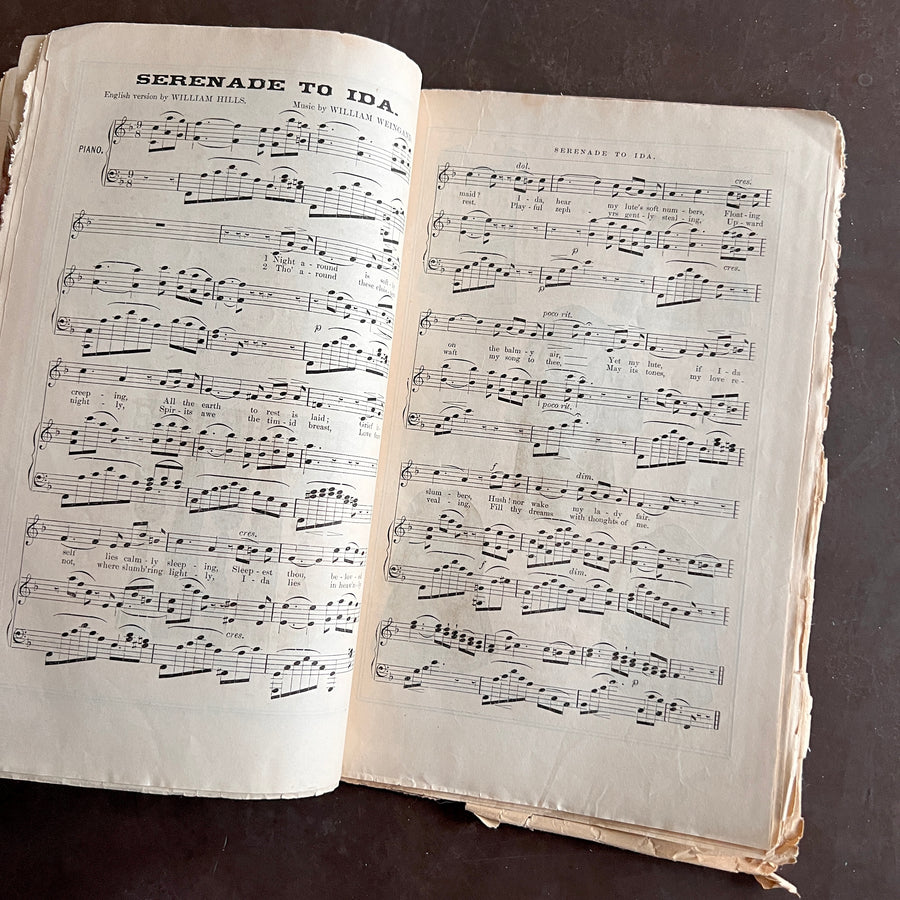 SERENADE TO IDA.
English version by WILLIAM HILLS.
Music by WILLIAM
PIANO.
9 8
9 8
1 Night a - round is
2 Tho' a - round these
p
creep - ing, All the earth to rest is laid; Grief
night - ly, Spir - its awe the tim - id breast, Love
cres.
self lies calm - ly sleep - ing, Sleep - est thou,
not, where slumb'ring light - ly, I - da lies
cres.
SERENADE TO IDA.
dol. cres.
maid? I - da, hear my lute's soft num - bers, Float - ing
rest. Play - ful zeph - yrs gent - ly steal - ing, Up - ward
p
cres.
p
poco rit.
on the balm - y air, Yet my lute, if I - da
waft my song to thee, May its tones, my love re -
poco rit.
f dim.
slum - bers, Hush! nor wake my la - dy fair.
veal - ing, Fill thy dreams with thoughts of me.
f dim.
p